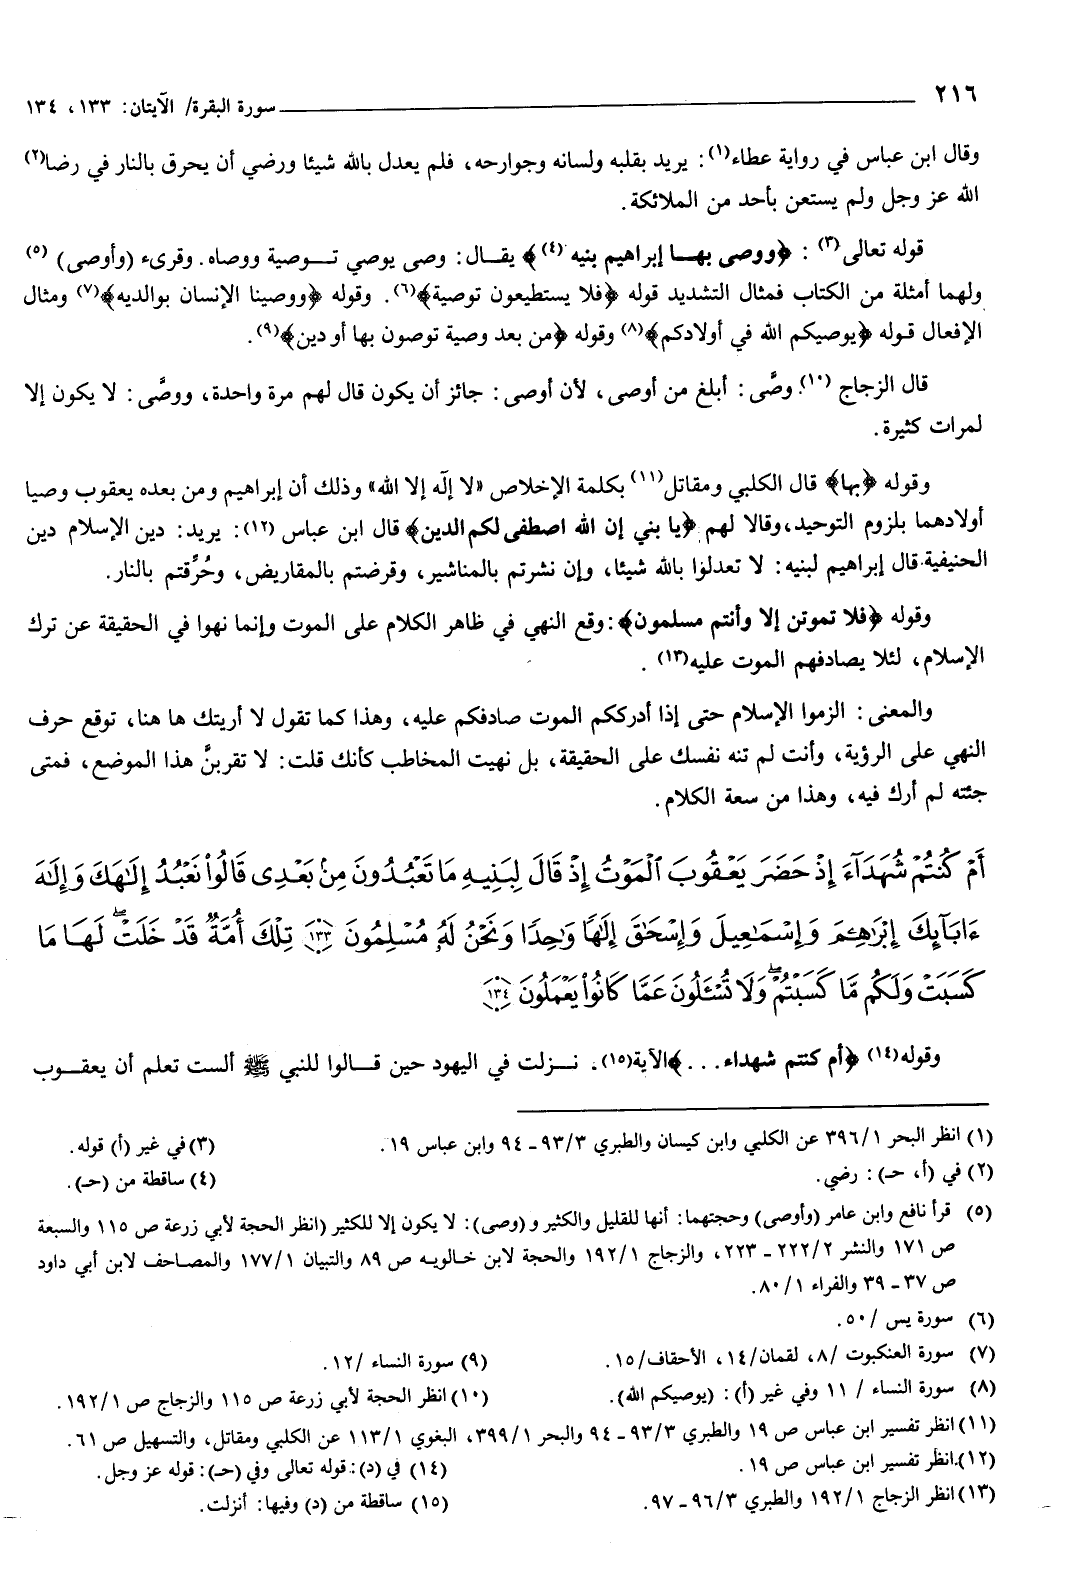 ٢١٦ سورة البقرة/ الآيتان: ١٣٣، ١٣٤
وقال ابن عباس في رواية عطاء(١): يريد بقلبه ولسانه وجوارحه، فلم يعدل بالله شيئا ورضي أن يحرق بالنار في رضا(٢)
الله عز وجل ولم يستعن بأحد من الملائكة.
قوله تعالى(٣) : ﴿ووصى بهـا إبراهيم بنيه (٤)﴾ يقـال: وصى يوصي تـوصية ووصاه. وقرىء (وأوصى) (٥)
ولهما أمثلة من الكتاب فمثال التشديد قوله ﴿فلا يستطيعون توصية﴾(٦). وقوله ﴿ووصينا الإنسان بوالديه﴾(٧) ومثال
الإفعال قـوله ﴿يوصيكم الله في أولادكم﴾(٨) وقوله ﴿من بعد وصية توصون بها أو دين﴾(٩).
قال الزجاج (١٠): وصَّى: أبلغ من أوصى، لأن أوصى: جائز أن يكون قال لهم مرة واحدة، ووصَّى: لا يكون إلا
لمرات كثيرة.
وقوله ﴿بها﴾ قال الكلبي ومقاتل(١١) بكلمة الإخلاص «لا إلَه إلا الله» وذلك أن إبراهيم ومن بعده يعقوب وصيا
أولادهما بلزوم التوحيد،وقالا لهم ﴿يا بني إن الله اصطفى لكم الدين﴾ قال ابن عباس (١٢): يريد: دين الإسلام دين
الحنيفية.قال إبراهيم لبنيه: لا تعدلوا بالله شيئا، وإن نشرتم بالمناشير، وقرضتم بالمقاريض، وحُرِّقتم بالنار.
وقوله ﴿فلا تموتن إلا وأنتم مسلمون﴾:وقع النهي في ظاهر الكلام على الموت وإنما نهوا في الحقيقة عن ترك
الإسلام، لئلا يصادفهم الموت عليه(١٣) .
والمعنى: الزموا الإسلام حتى إذا أدرككم الموت صادفكم عليه، وهذا كما تقول لا أريتك ها هنا، توقع حرف
النهي على الرؤية، وأنت لم تنه نفسك على الحقيقة، بل نهيت المخاطب كأنك قلت: لا تقربنَّ هذا الموضع، فمتى
جئته لم أرك فيه، وهذا من سعة الكلام.
أَمْ كُنتُمْ شُهَدَآءَ إِذْ حَضَرَ يَعْقُوبَ ٱلْمَوْتُ إِذْ قَالَ لِبَنِيهِ مَا تَعْبُدُونَ مِنۢ بَعْدِى قَالُوا۟ نَعْبُدُ إِلَٰهَكَ وَإِلَٰهَ
ءَابَآئِكَ إِبْرَٰهِـۧمَ وَإِسْمَٰعِيلَ وَإِسْحَٰقَ إِلَٰهًا وَٰحِدًا وَنَحْنُ لَهُۥ مُسْلِمُونَ ١٣٣ تِلْكَ أُمَّةٌ قَدْ خَلَتْۖ لَهَا مَا
كَسَبَتْ وَلَكُم مَّا كَسَبْتُمْۖ وَلَا تُسْـَٔلُونَ عَمَّا كَانُوا۟ يَعْمَلُونَ ١٣٤
وقوله(١٤) ﴿أم كنتم شهداء...﴾الآية(١٥). نـزلت في اليهود حين قـالوا للنبي ﷺ ألست تعلم أن يعقـوب
(١) انظر البحر ٣٩٦/١ عن الكلبي وابن كيسان والطبري ٩٣/٣ ـ ٩٤ وابن عباس ١٩.
(٣) في غير (أ) قوله.
(٢) في (أ، حـ): رضي.
(٤) ساقطة من (حـ).
(٥) قرأ نافع وابن عامر (وأوصى) وحجتهما: أنها للقليل والكثير و (وصى): لا يكون إلا للكثير (انظر الحجة لأبي زرعة ص ١١٥ والسبعة
ص ١٧١ والنشر ٢٢٢/٢ ـ ٢٢٣، والزجاج ١٩٢/١ والحجة لابن خـالويـه ص ٨٩ والتبيان ١٧٧/١ والمصـاحف لابن أبي داود
ص ٣٧ ـ ٣٩ والفراء ٨٠/١.
(٦) سورة يس /٥٠.
(٧) سورة العنكبوت /٨، لقمان/١٤، الأحقاف/١٥.
(٩) سورة النساء /١٢.
(٨) سورة النساء / ١١ وفي غير (أ): (يوصيكم الله).
(١٠) انظر الحجة لأبي زرعة ص ١١٥ والزجاج ص ١٩٢/١.
(١١) انظر تفسير ابن عباس ص ١٩ والطبري ٩٣/٣ ـ ٩٤ والبحر ٣٩٩/١، البغوي ١١٣/١ عن الكلبي ومقاتل، والتسهيل ص ٦١.
(١٢) انظر تفسير ابن عباس ص ١٩.
(١٤) في (د): قوله تعالى وفي (حـ): قوله عز وجل.
(١٣) انظر الزجاج ١٩٢/١ والطبري ٩٦/٣ ـ ٩٧.
(١٥) ساقطة من (د) وفيها: أنزلت.